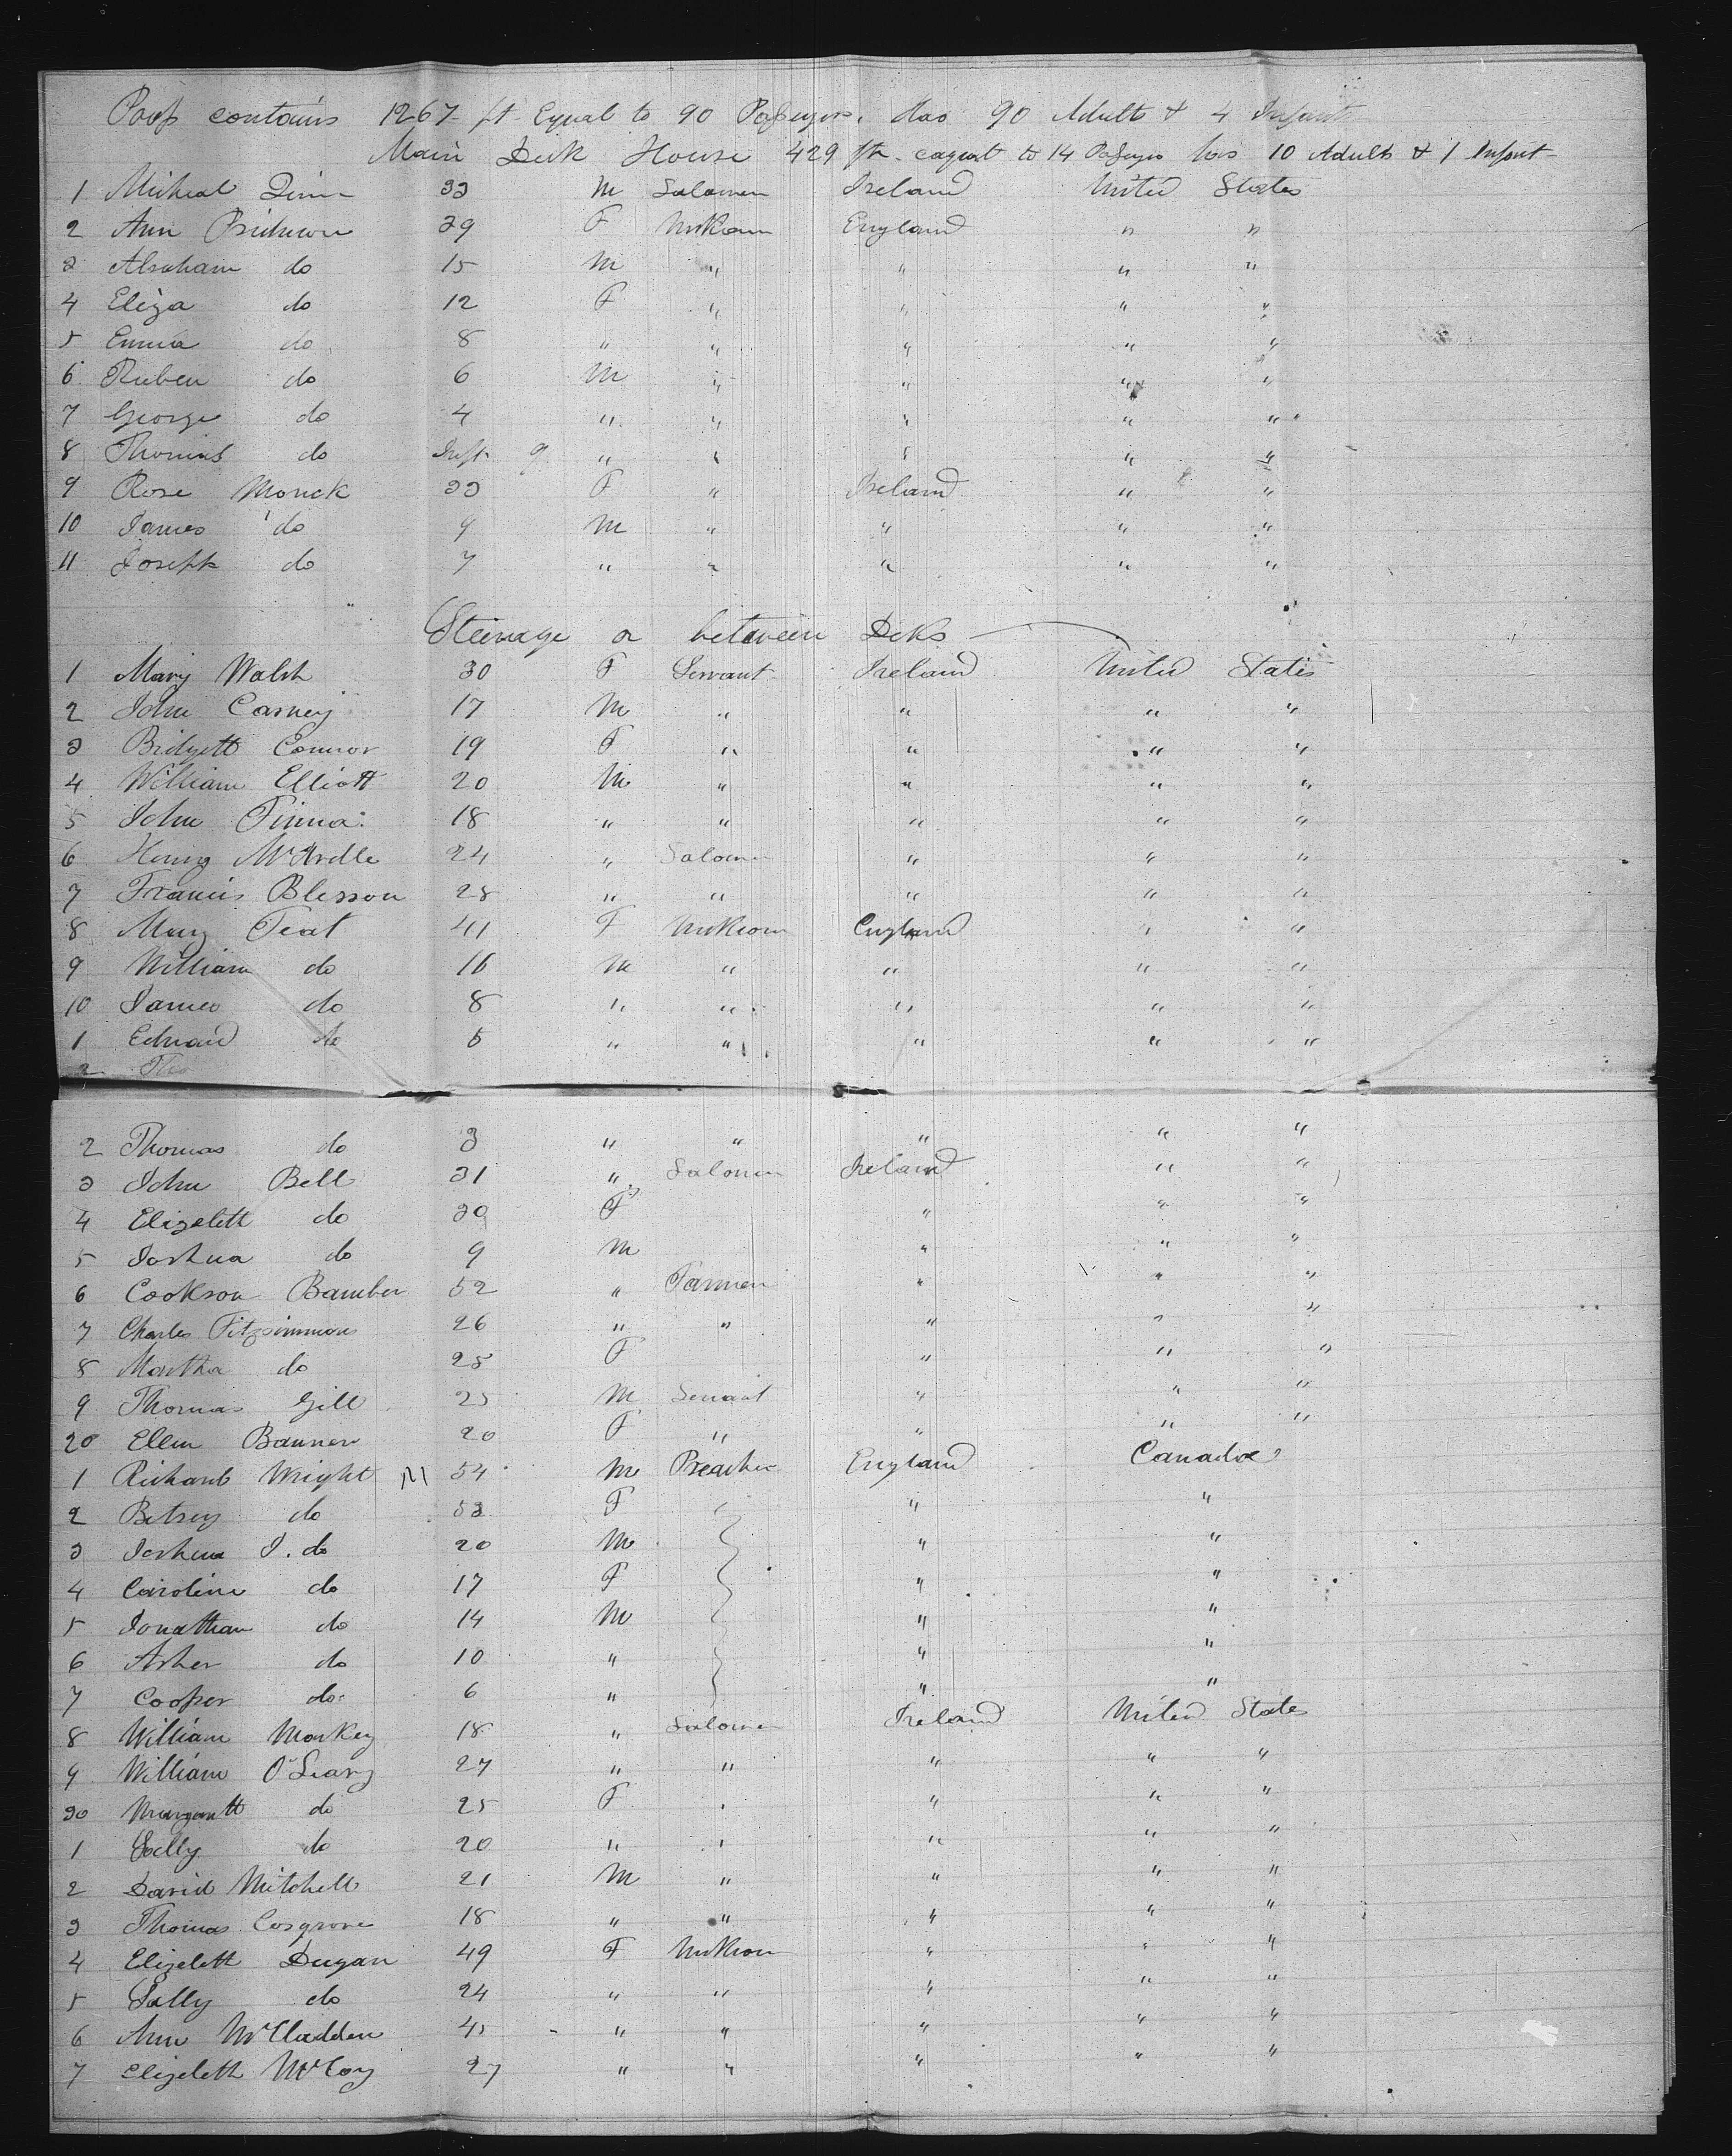 Poop contains 1267 ft Equal to 90 Passengers. Has 90 Adults & 4 Infants
Main Deck House 429 ft. equal to 14 Passengers has 10 Adults & 1 Infant
1 Micheal Quinn 33 M Ireland United States
2 Ann 39 F Unknown England " "
3 Abraham do 15 M " " " "
4 Eliza do 12 F " " " "
5 Emma do 8 " " " " "
6 Ruben do 6 M " " " "
7 George do 4 " " " " "
8 Thomas do Inft 9 " " " " "
9 Rose Monck 33 F " Ireland " "
10 James do 9 M " " " "
11 Joseph do 7 " " " " "
Steerage or between Decks
1 Mary Walsh 30 F Servant Ireland United States
2 John Carney 17 M " " " "
3 Bridgett Connor 19 F " " " "
4 William Elliott 20 M " " " "
5 John 18 " " " " "
6 Henry McArdle 24 " " " "
7 Francis Blesson 28 " " " " "
8 Mary Teat 41 F Unknown England " "
9 William do 16 M " " " "
10 James do 8 " " " " "
1 Edward do 5 " " " " "
2 Tho
2 Thomas do 3 " " " " "
3 John Bell 31 " Ireland " "
4 Elizebeth do 30 F " " "
5 Joshua do 9 M " " "
6 Cookson Bamber 52 " Farmer " " "
7 Charles Fitzsimmons 26 " " " " "
8 Martha do 25 F " " "
9 Thomas Gill 25 M Servant " " "
20 Ellen Banner 20 F " " " "
1 Richard Wright M 54 M Preacher England Canada
2 Betsey do 53 F " "
3 Joshua J. do 20 M " "
4 Caroline do 17 F " "
5 Jonathan do 14 M " "
6 Asher do 10 " " "
7 Cooper do 6 " " "
8 William Monkey 18 " Ireland United States
9 William O'Leary 27 " " " " "
30 Margarett do 25 F " " " "
1 Sally do 20 " " " " "
2 David Mitchell 21 M " " " "
3 Thomas Cosgrove 18 " " " " "
4 Elizebeth Dugan 49 F Unknown " " "
5 Sally do 24 " " " " "
6 Ann McCladden 45 " " " " "
7 Elizebeth McCoy 27 " " " " "